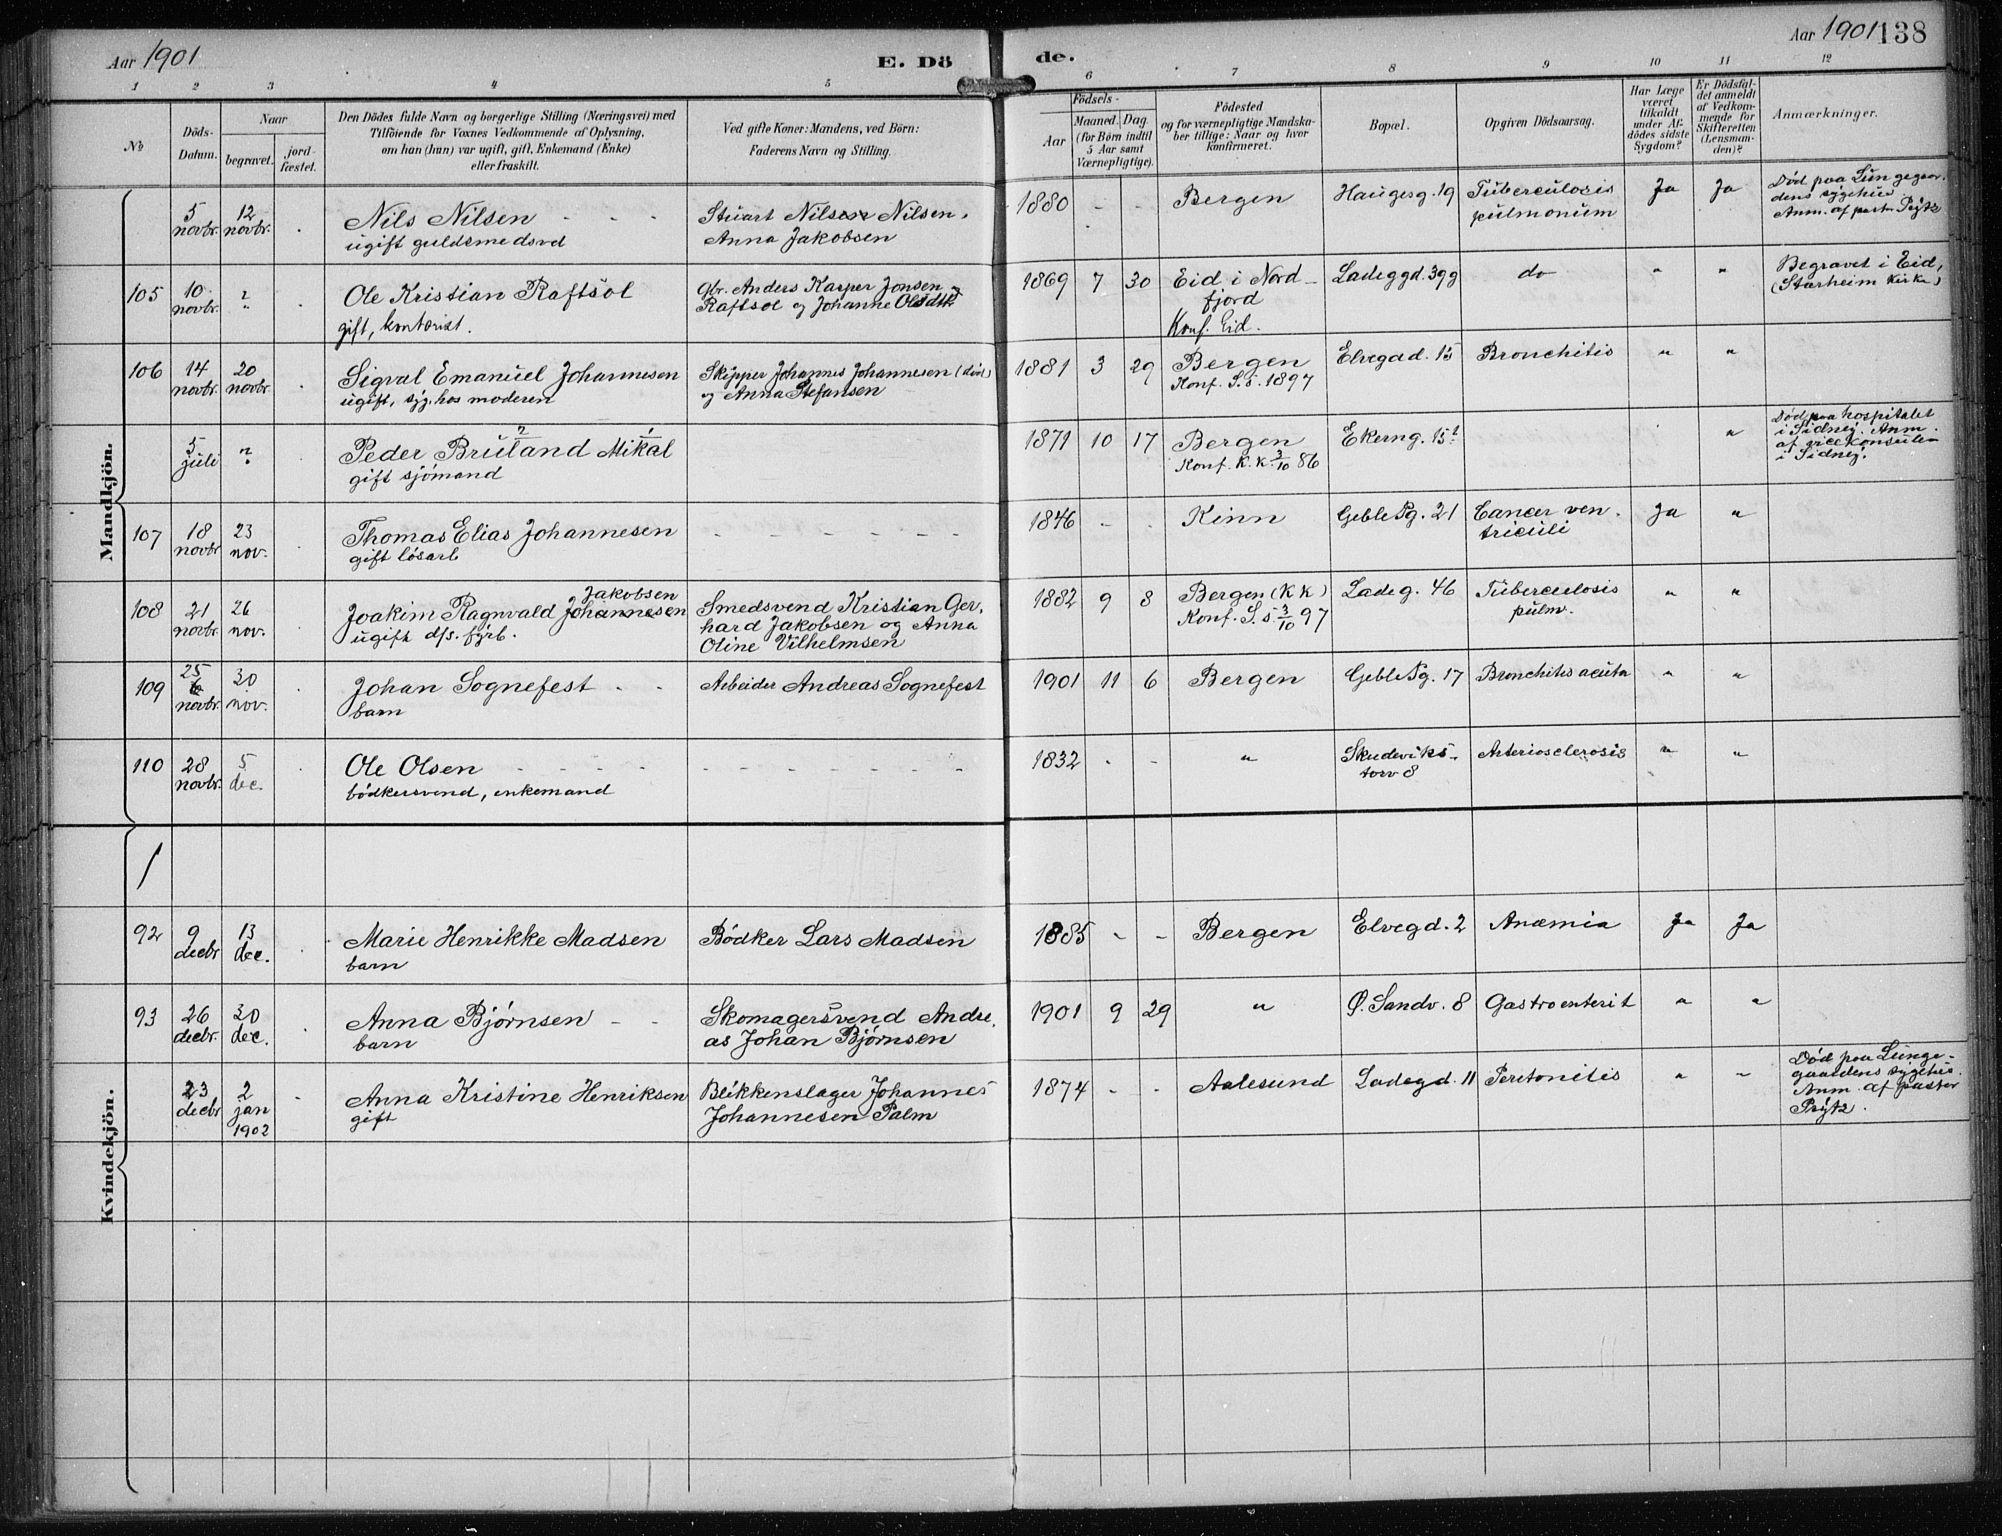 Aar 1901
E. Dö
de.
Aar 1901
138
1 2 3 4 5 6 7 8 9 10 11 12
No
Döds-
Datum.
Naar
begravet.
jord-
fæstet.
Den Dödes fulde Navn og borgerlige Stilling (Næringsvei) med
Tilföiende for Voxnes Vedkommende af Oplysning,
om han (hun) var ugift, gift, Enkemand (Enke)
eller fraskilt.
Ved gifte Koner: Mandens, ved Börn:
Faderens Navn og Stilling.
Födsels-
Aar
Maaned.
Dag.
(for Börn indtil
5 Aar samt
Værnepligtige).
Födested
og for værnepligtige Mandska-
ber tillige: Naar og hvor
konfirmeret.
Bopæl.
Opgiven Dödsaarsag.
Har Læge
været
tilkaldt
under Af-
dödes sidste
Sygdom?
Er Dödsfal-
det anmeldt
af Vedkom-
mende for
Skifteretten
(Lensman-
den)?
Anmærkninger.
Mandkjön.
5 novbr. 12 novbr. Nils Nilsen
ugift guldsmedsvd
Stuart Nilsen Nilsen.
Anna Jakobsen
1880 - - Bergen Haugesg. 19 Tuberculosis
pulmonum
Ja Ja Død paa Lungegaar-
dens sygehus
Anm. af past. Prÿtz
105 10 novbr. ? Ole Kristian Raftsol
gift, kontorist.
gbr. Anders Kasper Jonsen
Raftsol og Johanne Olsdtr
1869 7 30 Eid i Nord-
fjord
Konf. Eid.
Ladeggd. 39g do " " Begravet i Eid,
(Starheim kirke)
106 14 novbr. 20 novbr. Sigval Emanuel Johannesen
ugift, syg. hos moderen
Skipper Johannes Johannesen (død)
og Anna Stefansen
1881 3 29 Bergen
Konf. S. s. 1897
Elvegad. 15 Bronchitis " "
5 juli ? Peder Bruland Mikal
gift sjömand
1871 10 17 Bergen
Konf. K. k. 3/10 86
Ekerng. 15? " Død paa hospitalet
i Sidneÿ. Anm.
af vicekonsulen
i Sidneÿ.
107 18 novbr 23 nov. Thomas Elias Johannesen
gift lösarb
1846 - - Kinn Geble Pg. 21 Cancer ven-
triculi
Ja "
108 21 novbr. 26 nov. Joakim Ragnvald Johannesen
Jakobsen
ugift dps. fyrb.
Smedsvend Kristian Ger-
hard Jakobsen og Anna
Oline Vilhelmsen
1882 9 8 Bergen (K k)
Konf. S. s. 3/10 97
Ladeg. 46 Tuberculosis
pulm.
" "
109 25 novbr. 30 nov. Johan Sognefest
barn
Arbeider Andreas Sognefest
1901 11 6 Bergen Geble Pg. 17 Bronchitis acuta " "
110 28 novbr. 5 dec. Ole Olsen
bödkersvend, enkemand
1832 - - " Skudeviks-
torv 8
Arteriosclerosis " "
Kvindekjön.
92 9 decbr 13 dec. Marie Henrikke Madsen
barn
Bödker Lars Madsen
1885 - - Bergen Elvegd. 2 Anæmia Ja Ja
93 26 decbr. 30 dec. Anna Bjørnsen
barn
Skomagersvend Andre-
as Johan Bjørnsen
1901 9 29 " Ø. Sandv. 8 Gastroenterit " "
23 decbr 2 jan 1902 Anna Kristine Henriksen
gift
Blikkenslager Johannes
Johannesen Palm
1874 - - Aalesund Ladegd. 11 Peritonitis " " Død paa Lunge-
gaardens sygehus.
Anm. af pastor
Prÿtz.